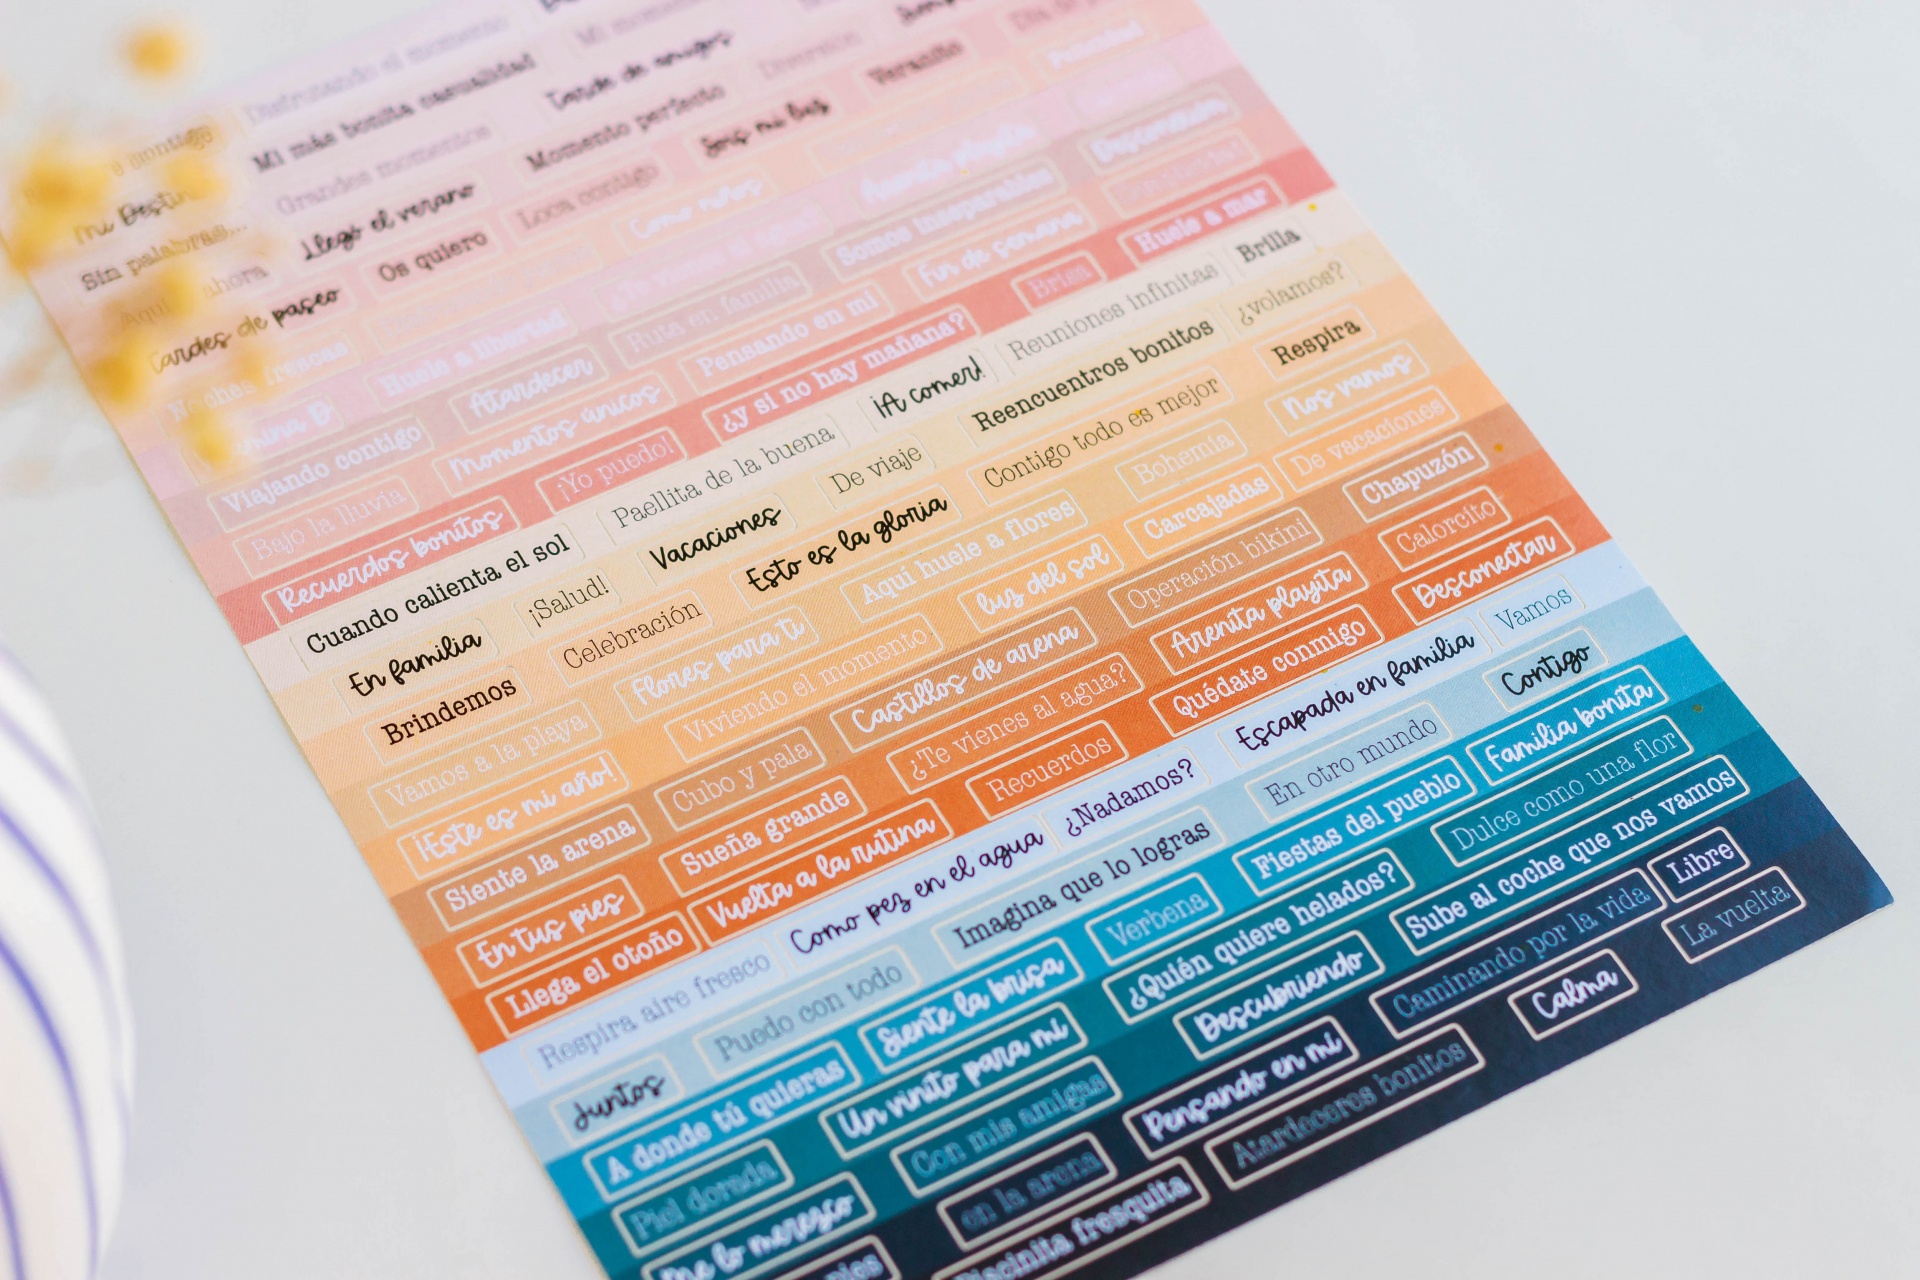 Disfrutando el momento
Mi más bonita casualidad
Tarde de amigos
Diversión
Grandes momentos
Momento perfecto
Sois mi luz
Veranito
Mi Destin
Sin palabras...
Llegó el verano
Loca contigo
Como niños
Felicidad
Aquí ahora
Os quiero
Tardes de paseo
Somos inseparables
Desconexión
Huele a libertad
Ruta en familia
Fin de semana
Atardecer
Pensando en mi
Brisa
Huele a mar
Viajando contigo
Momentos únicos
¿y si no hay mañana?
Reuniones infinitas
Brilla
Bajo la lluvia
¡Yo puedo!
¡A comer!
Reencuentros bonitos
¿volamos?
Recuerdos bonitos
Paellita de la buena
De viaje
Contigo todo es mejor
Respira
Cuando calienta el sol
Vacaciones
Bohemia
Nos vamos
En familia
¡Salud!
Esto es la gloria
Carcajadas
De vacaciones
Brindemos
Celebración
Aquí huele a flores
Operación bikini
Chapuzón
Vamos a la playa
Flores para ti
luz del sol
Arenita playita
Calorcito
¡Este es mi año!
Viviendo el momento
Castillos de arena
Quédate conmigo
Desconectar
Siente la arena
Cubo y pala
¿Te vienes al agua?
Escapada en familia
Vamos
En tus pies
Sueña grande
Recuerdos
En otro mundo
Contigo
Llega el otoño
Vuelta a la rutina
¿Nadamos?
Fiestas del pueblo
Familia bonita
Respira aire fresco
Como pez en el agua
Imagina que lo logras
¿Quién quiere helados?
Dulce como una flor
Juntos
Puedo con todo
Verbena
Descubriendo
Sube al coche que nos vamos
A donde tú quieras
Siente la brisa
Pensando en mi
Caminando por la vida
Libre
Piel dorada
Un vinito para mi
Atardeceres bonitos
Calma
La vuelta
Me lo merezco
Con mis amigas
en la arena
Piscinita fresquita